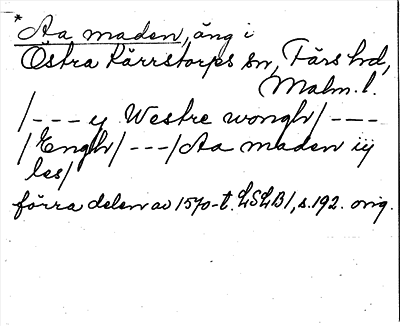 * Aa maden, äng i
Östra Kärrstorps sn, Färs hd,
Malm. l.
/--- ij Westre wongh/ ---
/Engh/ ---/Aa maden iij
les/
förra delen av 1570-t. LSLB1, s.192. orig.